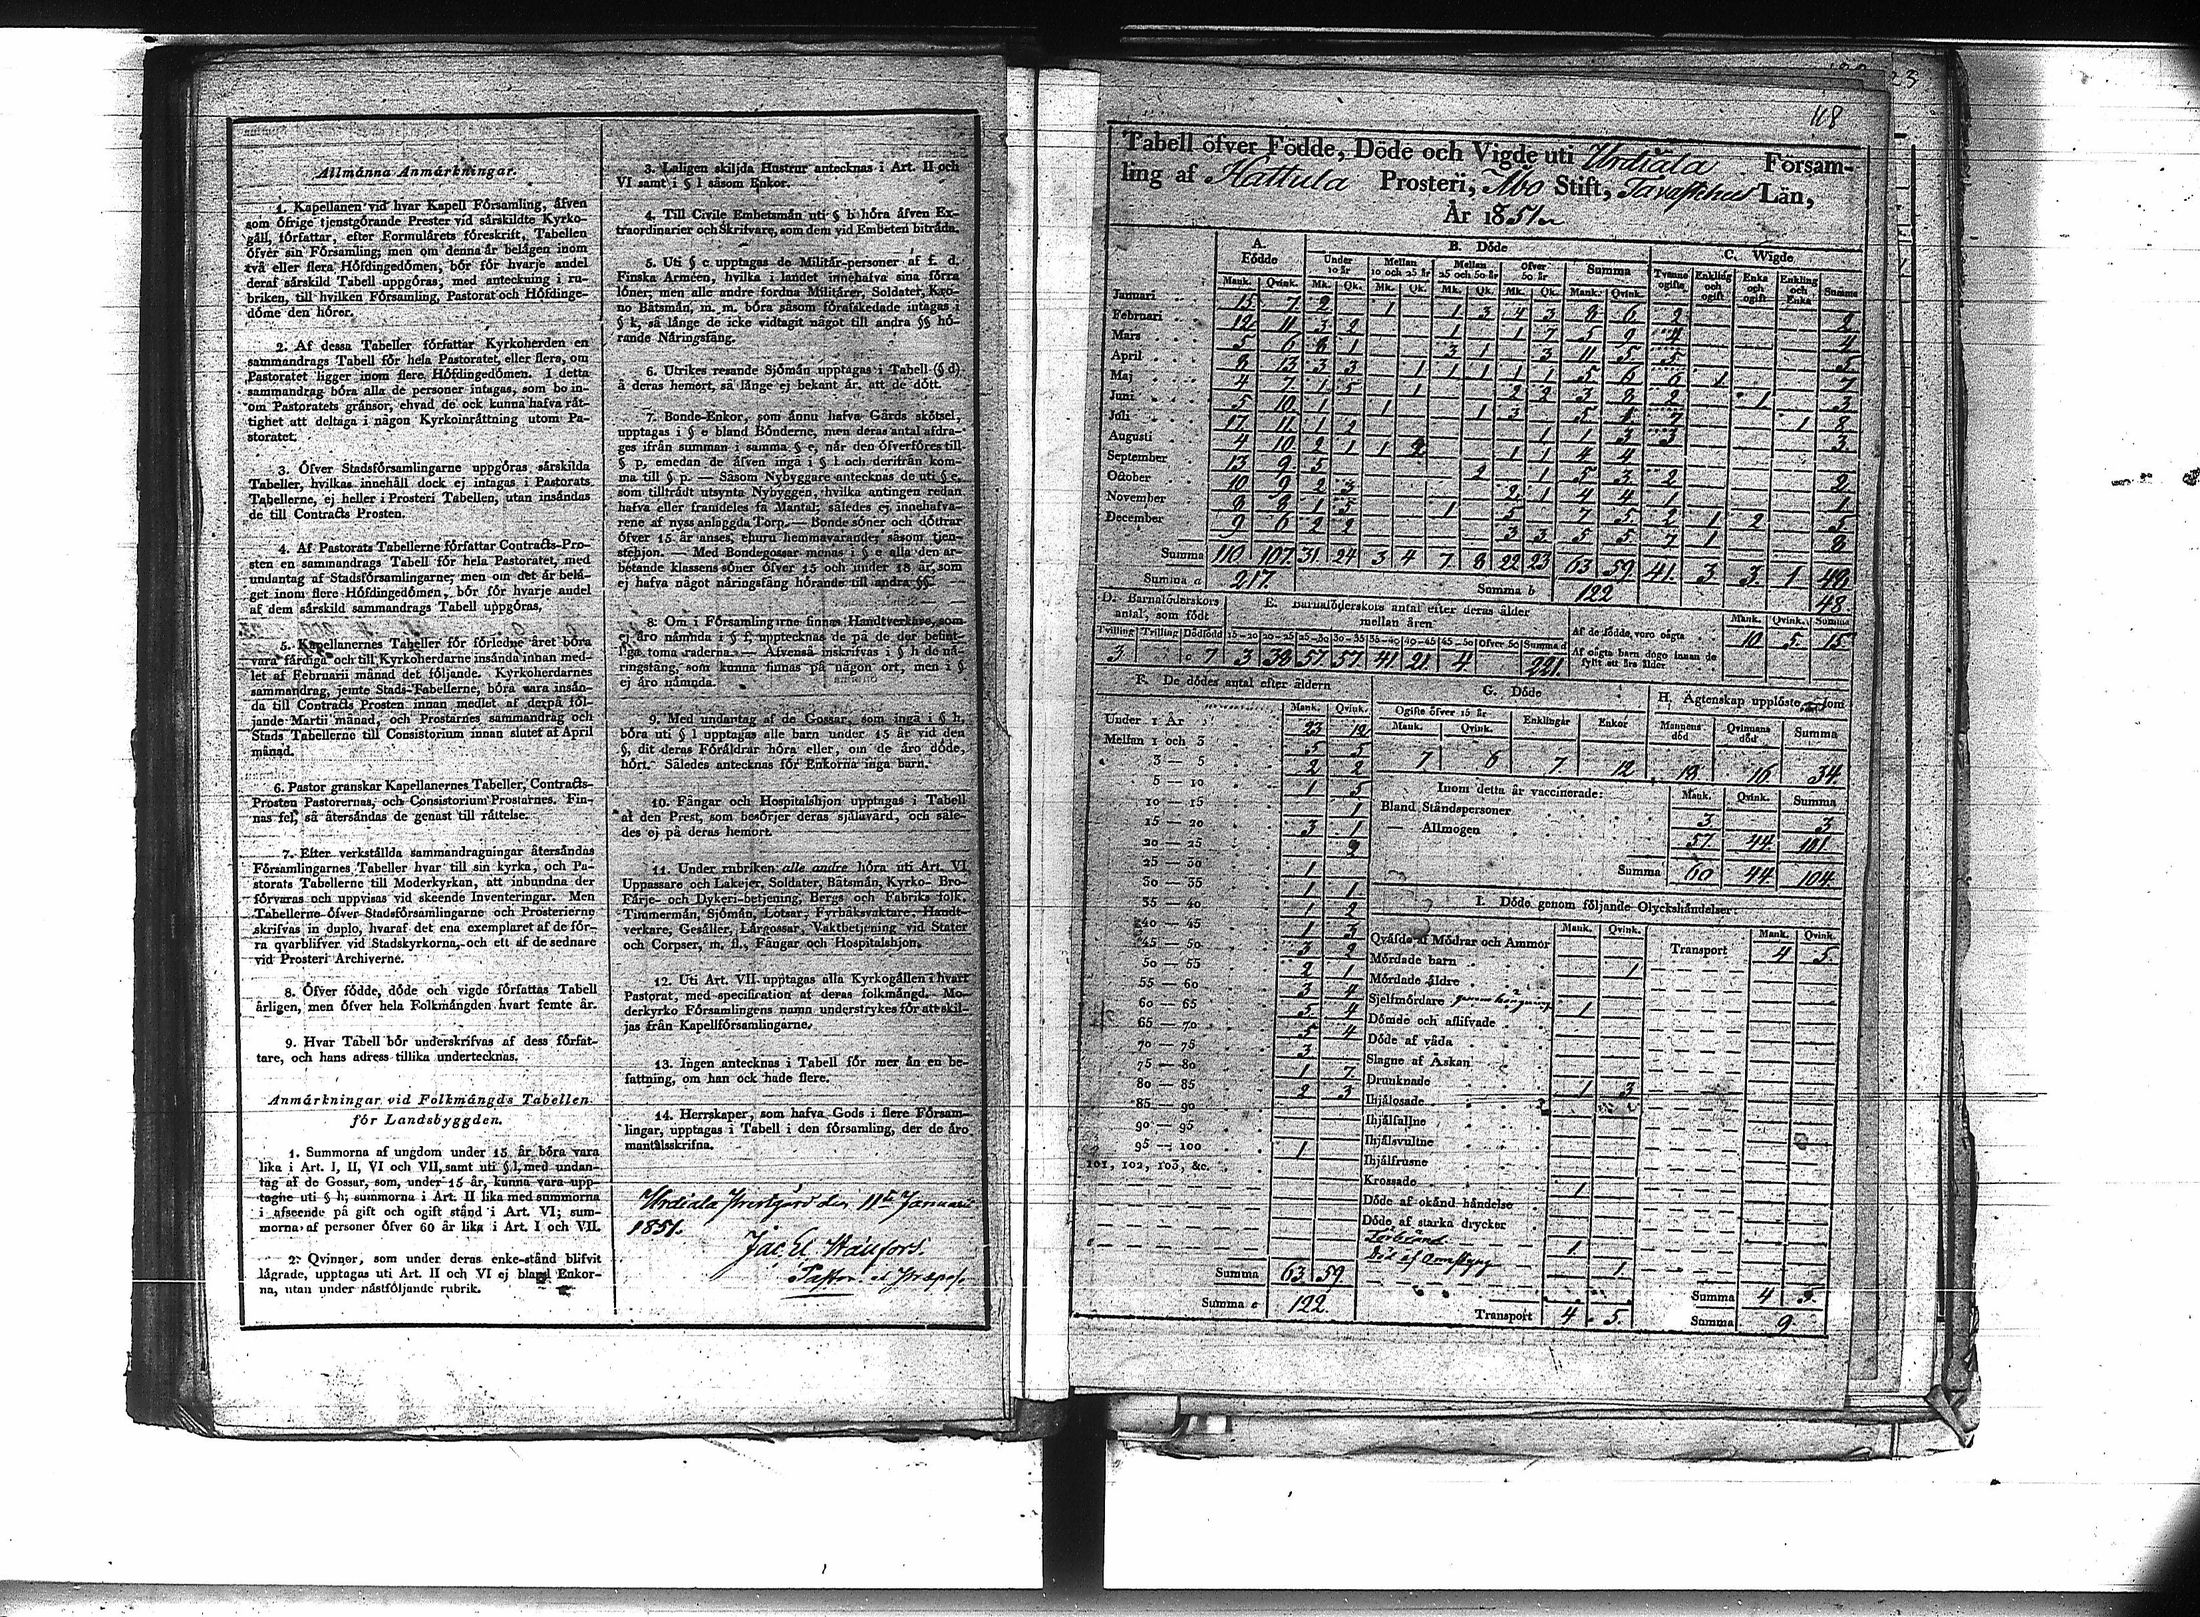 Allmänna Anmärkningar.
1. Kapellanen vid hvar Kapell Församling, äfven
som öfrige tjenstgörande Prester vid särskildte Kyrko-
gäll, författar, efter Formulärets föreskrift, Tabellen
öfver sin Församling; men om denna är belägen inom
två eller flera Höfdingedömen, bör för hvarje andel
deraf särskild Tabell uppgöras, med anteckning i ru-
briken, till hvilken Församling, Pastorat och Höfdinge-
döme den hörer.
2. Af dessa Tabeller författar Kyrkoherden en
sammandrags Tabell för hela Pastoratet, eller flera, om
Pastoratet ligger inom flere Höfdingedömen. I detta
sammandrag böra alla de personer intagas, som bo in-
om Pastoratets gränsor, ehvad de ock kunna hafva rät-
tighet att deltaga i någon Kyrkoinrättning utom Pa-
storatet.
3. Öfver Stadsförsamlingarne uppgöras särskilda
Tabeller, hvilkas innehåll dock ej intagas i Pastorats
Tabellerne, ej heller i Prosteri Tabellen, utan insändas
de till Contracts Prosten.
4. Af Pastorats Tabellerne författar Contracts-Pro-
sten en sammandrags Tabell för hela Pastoratet, med
undantag af Stadsförsamlingarne; men om det är belä-
get inom flere Höfdingedömen, bör för hvarje andel
af dem särskild sammandrags Tabell uppgöras,
5. Kapellanernes Tabeller för förledne året böra
vara färdiga och till Kyrkoherdarne insända innan med-
let af Februarii månad det följande. Kyrkoherdarnes
sammandrag, jemte Stads-Tabellerne, böra vara insän-
da till Contracts Prosten innan medlet af derpå föl-
jande Martii månad, och Prostarnes sammandrag och
Stads Tabellerne till Consistorium innan slutet af April
månad.
6. Pastor granskar Kapellanernes Tabeller, Contracts-
Prosten Pastorernas, och Consistorium Prostarnes. Fin-
nas fel, så återsändas de genast till rättelse.
7. Efter verkställda sammandragningar återsändas
Församlingarnes Tabeller hvar till sin kyrka, och Pa-
storats Tabellerne till Moderkyrkan, att inbundna der
förvaras och uppvisas vid skeende Inventeringar. Men
Tabellerne öfver Stadsförsamlingarne och Prosterierne
skrifvas in duplo, hvaraf det ena exemplaret af de för-
ra qvarblifver vid Stadskyrkorna, och ett af de sednare
vid Prosteri Archiverne.
8. Öfver födde, döde och vigde författas Tabell
årligen, men öfver hela Folkmängden hvart femte år.
9. Hvar Tabell bör underskrifvas af dess förfat-
tare, och hans adress tillika undertecknas.
Anmärkningar vid Folkmängds Tabellen
för Landsbyggden.
1. Summorna af ungdom under 15 år böra vara
lika i Art. I, II, VI och VII, samt uti § l, med undan-
tag af de Gossar, som, under 15 år, kunna vara upp-
tagne uti § h; summorna i Art. II lika med summorna
i afseende på gift och ogift stånd i Art. VI; sum-
morna af personer öfver 60 år lika i Art. I och VII.
2. Qvinnor, som under deras enke-stånd blifvit
lägrade, upptagas uti Art. II och VI ej bland Enkor-
na, utan under nästföljande rubrik.
3. Laligen skiljda Hustrur antecknas i Art. II och
VI samt i § l såsom Enkor.
4. Till Civile Embetsmän uti § b höra äfven Ex-
traordinarier och Skrifvare, som dem vid Embeten biträda.
5. Uti § c upptagas de Militär-personer af f. d.
Finska Arméen, hvilka i landet innehafva sina förra
löner; men alla andre fordna Militärer, Soldater, Kro-
no Båtsmän, m. m. böra såsom förafskedade intagas i
§ k, så länge de icke vidtagit något till andra §§ hö-
rande Näringsfång.
6. Utrikes resande Sjömän upptagas i Tabell (§ d)
å deras hemort, så länge ej bekant är, att de dött.
7. Bonde-Enkor, som ännu hafva Gårds skötsel,
upptagas i § e bland Bönderne, men deras antal afdra-
ges ifrån summan i samma § e, när den öfverföres till
§ p, emedan de äfven ingå i § l och derifrån kom-
ma till § p. — Såsom Nybyggare antecknas de uti § e,
som tillträdt utsynta Nybyggen, hvilka antingen redan
hafva eller framdeles få Mantal; således ej innehafva-
rene af nyss anlaggda Torp. — Bonde söner och döttrar
öfver 15 år anses, ehuru hemmavarande, såsom tjen-
stehjon. — Med Bondegossar menas i § e alla den ar-
betande klassens söner öfver 15 och under 18 år, som
ej hafva något näringsfång hörande till andra §§.
8. Om i Församlingarne finnas Handtverkare, som
ej äro nämnda i § f, upptecknas de på de der befint-
liga toma raderna. — Äfvenså inskrifvas i § h de nä-
ringsfång, som kunna finnas på någon ort, men i §
ej äro nämnda.
9. Med undantag af de Gossar, som ingå i § h,
böra uti § l upptagas alla barn under 15 år vid den
§, dit deras Föräldrar höra eller, om de äro döde,
hört. Således antecknas för Enkorna inga barn.
10. Fångar och Hospitalshjon upptagas i Tabell
af den Prest, som besörjer deras själavård, och såle-
des ej på deras hemort.
11. Under rubriken alle andre höra uti Art. VI
Uppassare och Lakejer, Soldater, Båtsmän, Kyrko- Bro-
Färje- och Dykeri-betjening, Bergs och Fabriks folk,
Timmermän, Sjömän, Lotsar, Fyrbåksvaktare, Handt-
verkare, Gesäller, Lärgossar, Vaktbetjening vid Stater
och Corpser, m. fl., Fångar och Hospitalshjon.
12. Uti Art. VII upptagas alla Kyrkogällen i hvart
Pastorat, med specification af deras folkmängd. Mo-
derkyrko Församlingens namn understrykes för att skil-
jas från Kapellförsamlingarne.
13. Ingen antecknas i Tabell för mer än en be-
fattning, om han ock hade flere.
14. Herrskaper, som hafva Gods i flere Försam-
lingar, upptagas i Tabell i den församling, der de äro
mantalsskrifna.
Urdiala Prestgård den 11te Januarii
1851.
Pastor et Præpos.
118
Tabell öfver Födde, Döde och Vigde uti Urdiala Försam-
ling af Hattula Prosteri, Åbo Stift, Tavasthus Län,
År 1851
A. Födde B. Döde C. Wigde
Under 10 år Mellan 10 och 25 år Mellan 25 och 50 år Öfver 50 år Summa Tvenne ogifte Enkling och ogift Enka och ogift Enkling och Enka Summa
Mank. Qvink. Mk. Qk. Mk. Qk. Mk. Qk. Mk. Qk. Mank. Qvink.
Januari 15 7 2 1 1 3 4 3 8 6 2 2
Februari 12 11 3 2 1 1 7 5 9 4 4
Mars 5 6 8 1 3 1 3 11 5 5 5
April 8 13 3 3 1 1 1 1 1 5 6 6 1 7
Maj 4 7 1 5 1 2 2 3 8 2 1 3
Juni 5 10 1 1 1 3 5 1 7 1 8
Juli 17 11 1 2 1 1 3 3 3
Augusti 4 10 2 1 1 2 1 1 4 4
September 13 9 5 2 1 5 3 2 2
October 10 9 2 3 2 1 4 4 1 1
November 8 8 1 5 1 5 7 5 2 1 2 5
December 9 6 2 2 3 3 5 5 7 1 8
Summa 110 107 31 24 3 4 7 8 22 23 63 59 41 3 3 1 48
Summa a 217 Summa b 122 48
D. Barnaföderskors antal, som födt
Tvilling Trilling Dödfödd
3 7
E. Barnaföderskors antal efter deras ålder mellan åren
15-20 20-25 25-30 30-35 35-40 40-45 45-50 Öfver 50 Summa d
3 38 57 57 41 21 4 221
Mank. Qvink. Summa
Af de födde, voro oägta 10 5 15
Af oägta barn dogo innan de fyllt ett års ålder
F. De dödes antal efter åldern
Mank. Qvink.
Under 1 År 23 12
Mellan 1 och 3 5 5
3 — 5 2 2
5 — 10 1 5
10 — 15 1
15 — 20 3 1
20 — 25 2
25 — 30 1
30 — 35 1 1
35 — 40 1 2
40 — 45 1 3
45 — 50 3 2
50 — 55 2 1
55 — 60 3 4
60 — 65 5 4
65 — 70 5 4
70 — 75 3
75 — 80 1 7
80 — 85 2 3
85 — 90
90 — 95
95 — 100 1
101, 102, 103, &c.
Summa 63 59
Summa c 122
G. Döde
Ogifte öfver 15 år Enklingar Enkor
Mank. Qvink.
7 6 7 12
H. Ägtenskap upplöste genom
Mannens död Qvinnans död Summa
18 16 34
Inom detta år vaccinerade: Mank. Qvink. Summa
Bland Ståndspersoner 3 3
— Allmogen 57 44 101
Summa 60 44 104
I. Döde genom följande Olyckshändelser:
Mank. Qvink.
Qväfde af Mödrar och Ammor
Mördade barn 1
Mördade äldre
Sjelfmördare genom hängning 1
Dömde och aflifvade
Döde af våda
Slagne af Åskan
Drunknade 1 3
Ihjälosade
Ihjälfallne
Ihjälsvultne
Ihjälfrusne
Krossade 1
Döde af okänd händelse
Döde af starka drycker
Förbränd 1
1
Transport 4 5
Mank. Qvink.
Transport 4 5
Summa 4 5
Summa 9